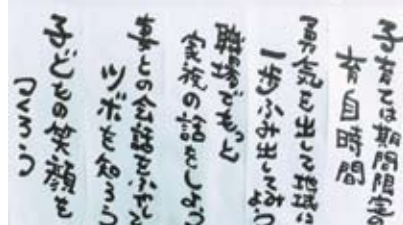 子育ては期間限定の
育自時間
勇気を出して地域に
一歩ふみ出してみよう
職場でもっと
家族の話をしよう
妻との会話をふかして
ツボを知ろう
子どもの笑顔を
つくろう